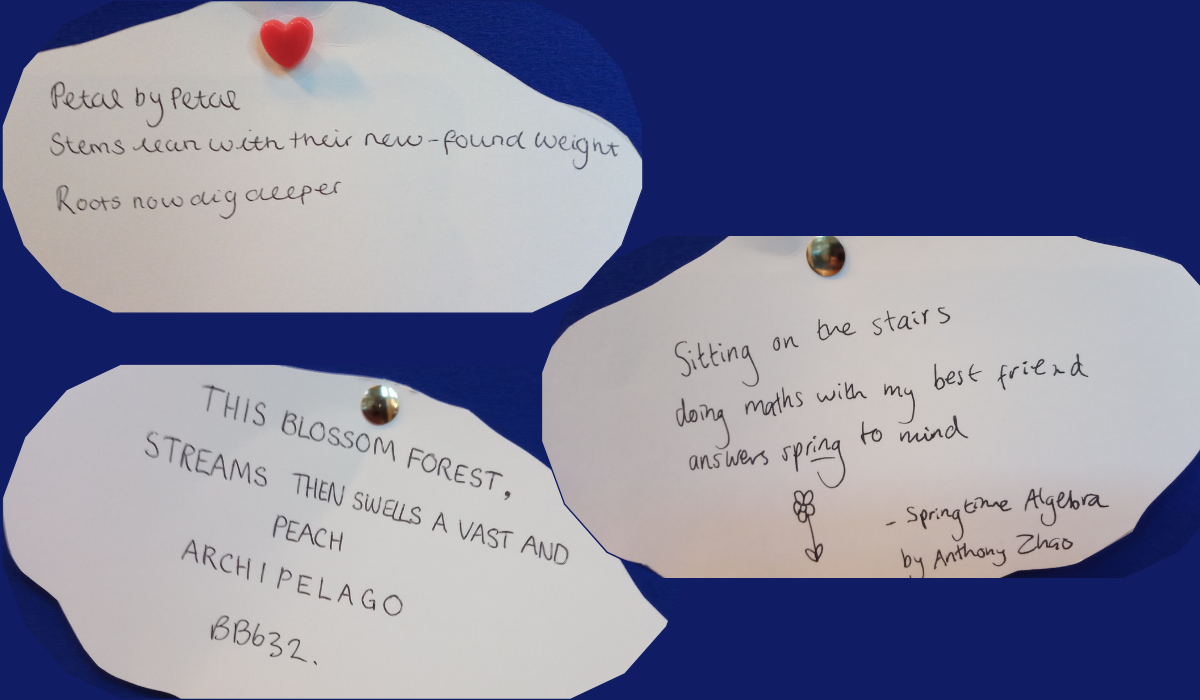 Petal by Petal
Stems lean with their new-found weight
Roots now dig deeper
Sitting on the stairs
doing maths with my best friend
answers spring to mind
- Springtime Algebra
by Anthony Zhao
THIS BLOSSOM FOREST,
STREAMS THEN SWELLS A VAST AND
PEACH
ARCHIPELAGO
BB632.